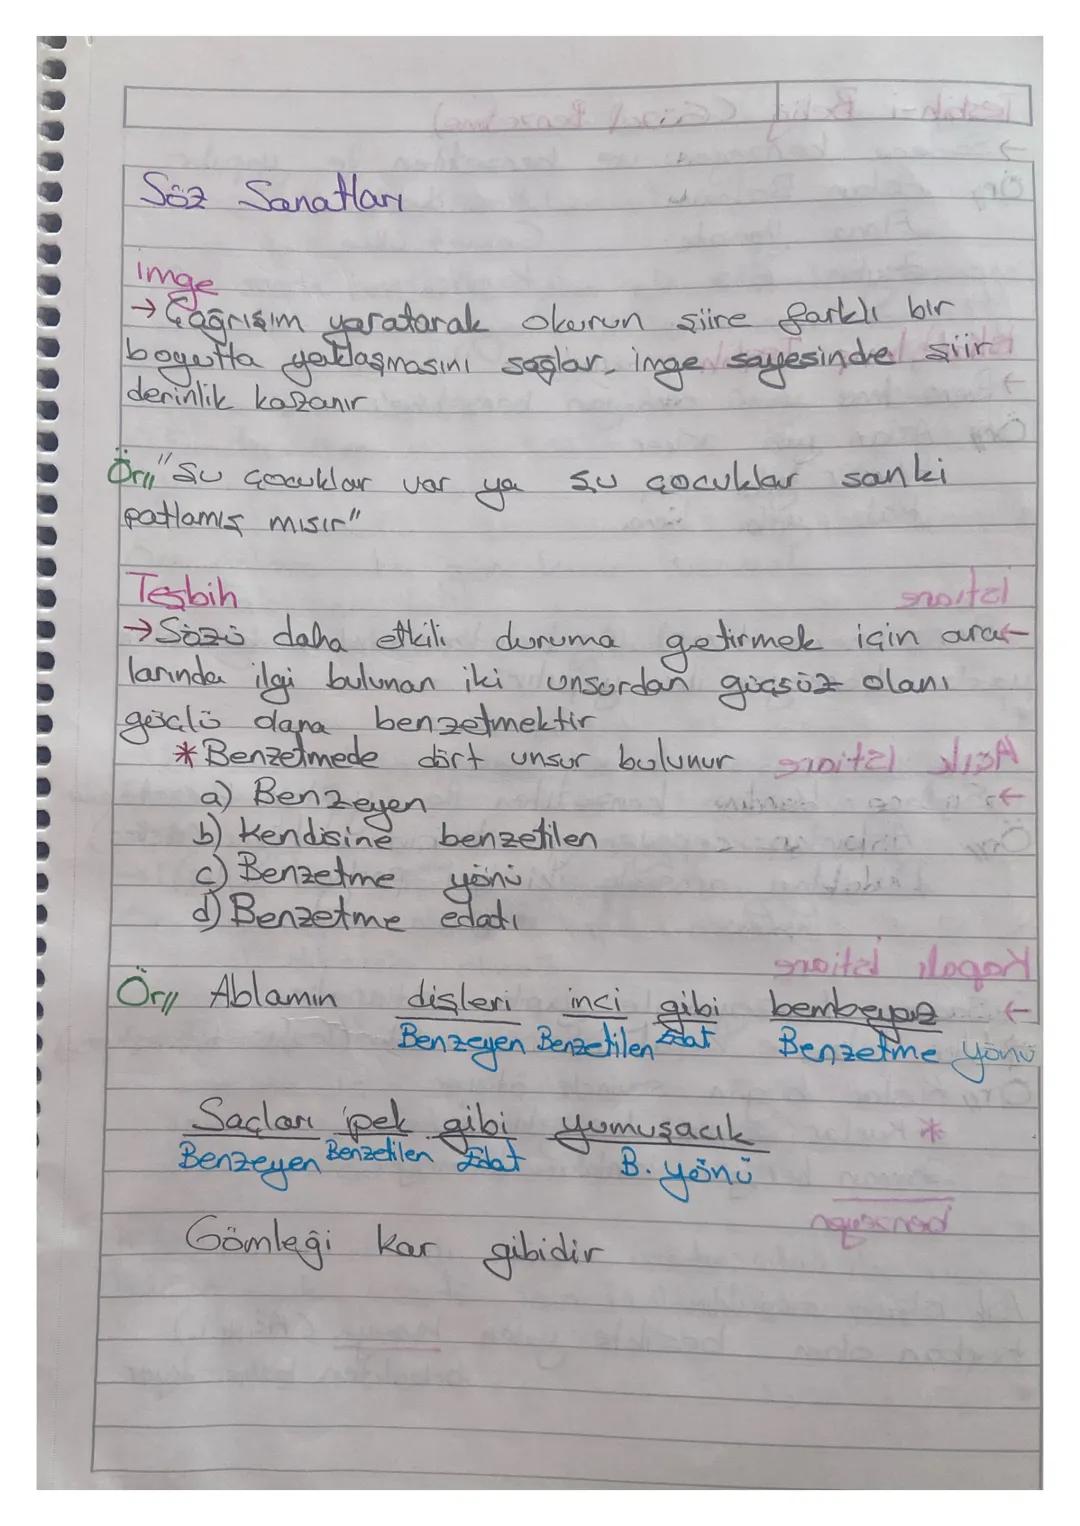 Söz Sanatları
imge
→ Çağrışım yaratarak okurun şiire farklı bir
boyutta yaklaşmasını sağlar, imge sayesinde şiir
derinlik kazanır
Ör// "Şu çocuklar var ya şu çocuklar sanki
patlamış mısır"
Teşbih
→ Sözü daha etkili duruma getirmek için ara-
larında ilgi bulunan iki unsurdan güçsüz olanı
güçlü olana benzetmektir
* Benzetmede dört unsur bulunur
a) Benzeyen
b) Kendisine benzetilen
c) Benzetme yönü
d) Benzetme edatı
Ör// Ablamın dişleri inci gibi bembeyaz
Benzeyen Benzetilen Edat Benzetme yönü
Saçları ipek gibi yumuşacık
Benzeyen Benzetilen Edat B. yönü
Gömleği kar gibidir